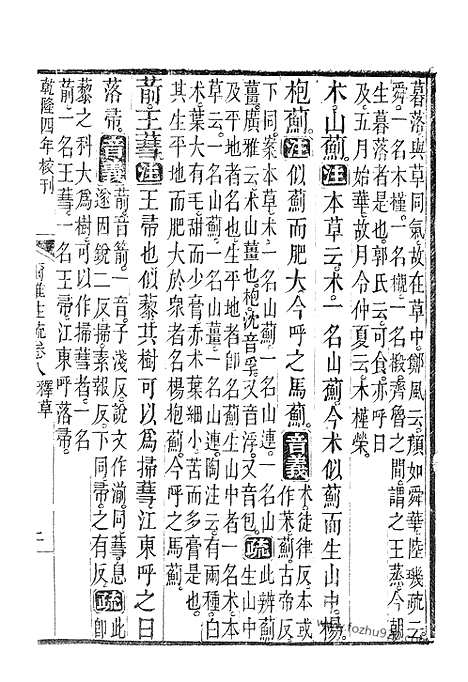 暮落與草同氣故在草中鄭風云顏如舜華陸璣疏云
舜一名木槿一名櫬一名椴齊魯之間謂之王蒸今朝
生暮落者是也郭氏云可食亦呼日
及五月始華故月令仲夏云木槿榮
朮山薊注本草云朮一名山薊今朮似薊而生山中楊
枹薊注似薊而肥大今呼之馬薊音義朮徒律反本或
作荣薊古帝反
下同疏此辨薊
薑廣雅云朮山薑也枹沈音孚又音浮又音包
生山中
及平地者名也生平地者即名薊生山中者一名朮本
草云一名山薊一名山薑一名山連陶注云有兩種白
朮葉大有毛甜而少膏赤朮葉細小苦而多膏是也
其生平地而肥大於衆者名楊枹薊今呼之馬薊
葥王蔧注王帚也似藜其樹可以為掃蔧江東呼之曰
落帚音義葥音箭一音子淺反說文作湔同蔧息
遂因銳二反掃素報反下同帚之有反疏此即
藜之科大為樹可以作掃蔧者一名
葥一名王蔧一名王帚江東呼落帚
乾隆四年校刊
爾雅注疏卷八釋草
www.fozhu9